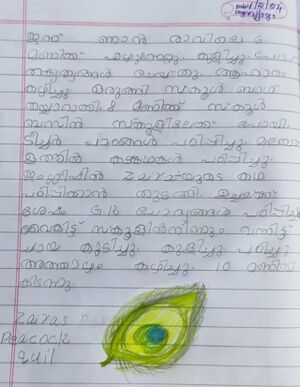 ഇന്ന് ഞാൻ രാവിലെ 6
മണിക്ക് എഴുന്നേറ്റു. കുളിച്ചു
കൃത്യങ്ങൾ ചെയ്തു. ആഹാരം
കഴിച്ചു ഒരുങ്ങി സ്കൂൾ ബാഗ്
തയ്യാറാക്കി. 8 മണിക്ക് സ്കൂൾ
ബസിൽ സ്കൂളിലേക്ക് പോയി.
ടീച്ചർ പാഠങ്ങൾ പഠിപ്പിച്ചു. മലയാ
ളത്തിൽ കടങ്കഥകൾ പഠിപ്പിച്ചു.
ഇംഗ്ലീഷിൽ Zaira യുടെ കഥ
പഠിപ്പിക്കാൻ തുടങ്ങി. ഉച്ചയ്ക്ക്
ശേഷം G.K ചോദ്യങ്ങൾ പഠിപ്പിച്ചു
വൈകിട്ട് സ്കൂളിൽനിന്നും വന്നിട്ട്
ചായ കുടിച്ചു. കുളിച്ചു പഠിച്ചു
അത്താഴം കഴിച്ചു. 10 മണിക്ക്
കിടന്നു.
Peacock
quil